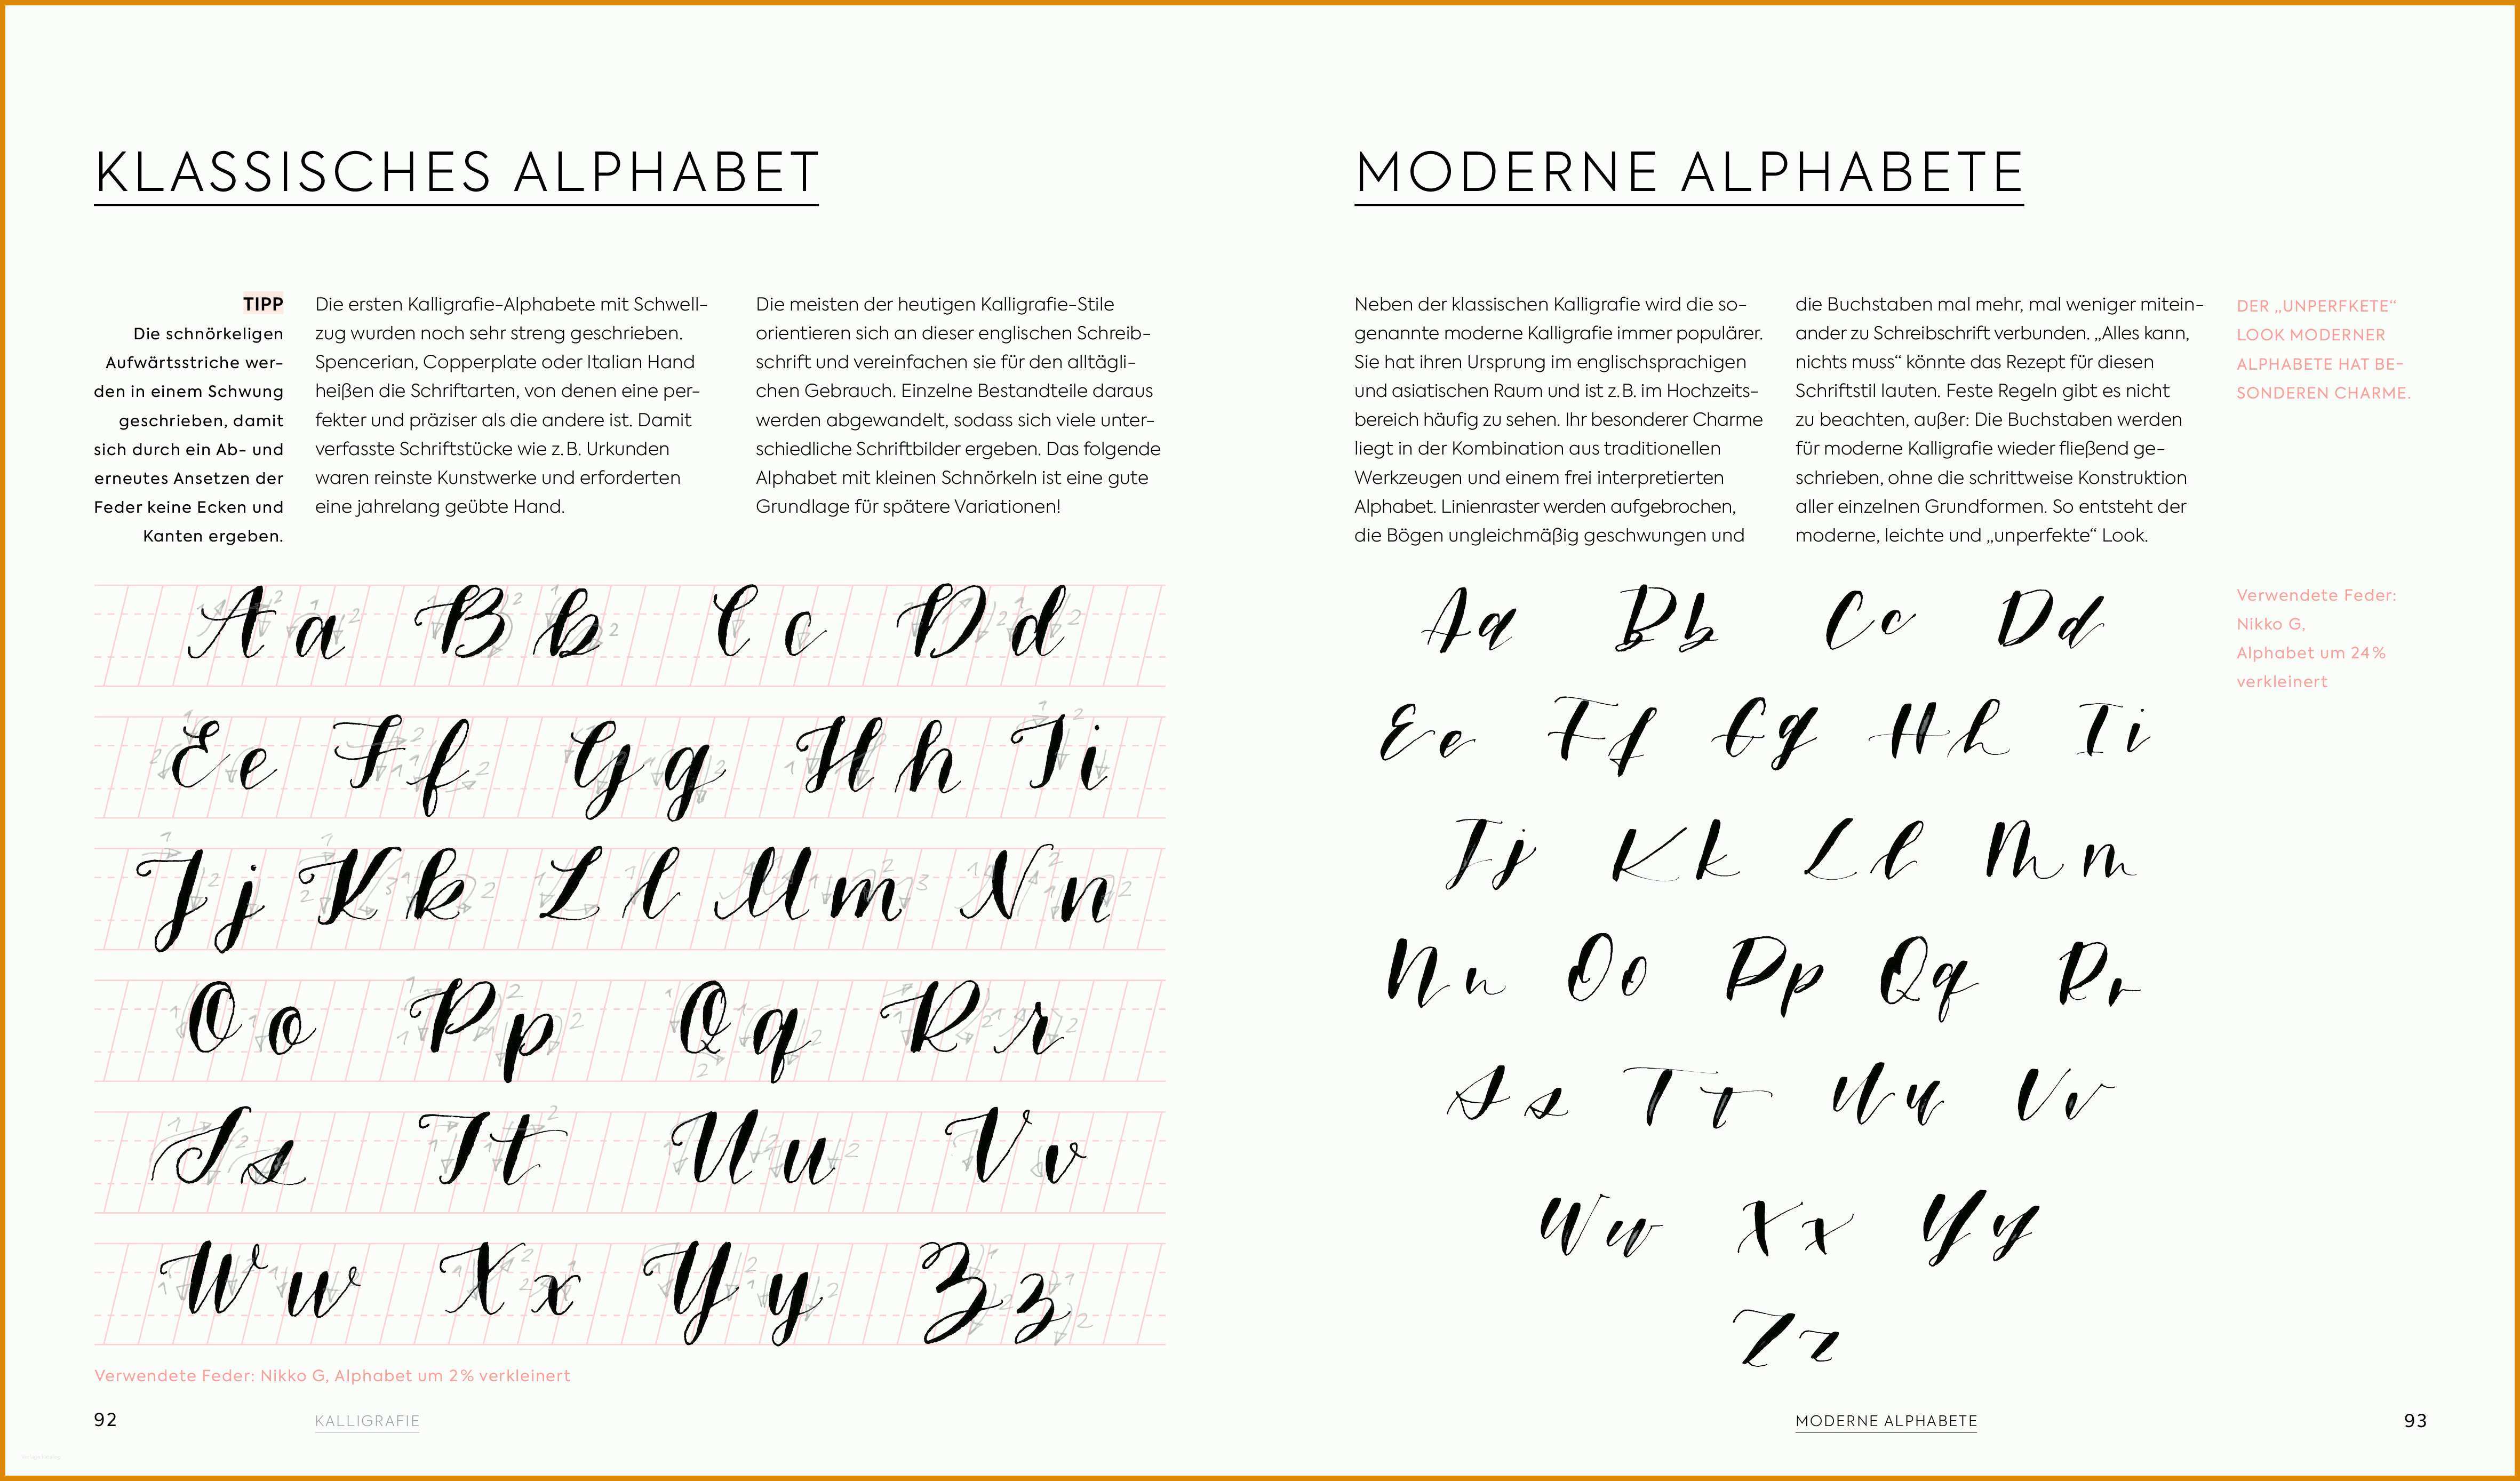 KLASSISCHES ALPHABET
TIPP
Die schnörkeligen
Aufwärtsstriche wer-
den in einem Schwung
geschrieben, damit
sich durch ein Ab- und
erneutes Ansetzen der
Feder keine Ecken und
Kanten ergeben.
Die ersten Kalligrafie-Alphabete mit Schwell-
zug wurden noch sehr streng geschrieben.
Spencerian, Copperplate oder Italian Hand
heißen die Schriftarten, von denen eine per-
fekter und präziser als die andere ist. Damit
verfasste Schriftstücke wie z. B. Urkunden
waren reinste Kunstwerke und erforderten
eine jahrelang geübte Hand.
Die meisten der heutigen Kalligrafie-Stile
orientieren sich an dieser englischen Schreib-
schrift und vereinfachen sie für den alltägli-
chen Gebrauch. Einzelne Bestandteile daraus
werden abgewandelt, sodass sich viele unter-
schiedliche Schriftbilder ergeben. Das folgende
Alphabet mit kleinen Schnörkeln ist eine gute
Grundlage für spätere Variationen!
Aa Bb Cc Dd
Ee Ff Gg Hh Ii
Jj Kk Ll Mm Nn
Oo Pp Qq Rr
Ss Tt Uu Vv
Ww Xx Yy Zz
Verwendete Feder: Nikko G, Alphabet um 2% verkleinert
92
KALLIGRAFIE
MODERNE ALPHABETE
Neben der klassischen Kalligrafie wird die so-
genannte moderne Kalligrafie immer populärer.
Sie hat ihren Ursprung im englischsprachigen
und asiatischen Raum und ist z. B. im Hochzeits-
bereich häufig zu sehen. Ihr besonderer Charme
liegt in der Kombination aus traditionellen
Werkzeugen und einem frei interpretierten
Alphabet. Linienraster werden aufgebrochen,
die Bögen ungleichmäßig geschwungen und
die Buchstaben mal mehr, mal weniger mitein-
ander zu Schreibschrift verbunden. „Alles kann,
nichts muss“ könnte das Rezept für diesen
Schriftstil lauten. Feste Regeln gibt es nicht
zu beachten, außer: Die Buchstaben werden
für moderne Kalligrafie wieder fließend ge-
schrieben, ohne die schrittweise Konstruktion
aller einzelnen Grundformen. So entsteht der
moderne, leichte und „unperfekte“ Look.
DER „UNPERFKETE“
LOOK MODERNER
ALPHABETE HAT BE-
SONDEREN CHARME.
Verwendete Feder:
Nikko G,
Alphabet um 24%
verkleinert
Aa Bb Cc Dd
Ee Ff Gg Hh Ii
Jj Kk Ll Mm
Nn Oo Pp Qq Rr
Ss Tt Uu Vv
Ww Xx Yy
Zz
MODERNE ALPHABETE
93